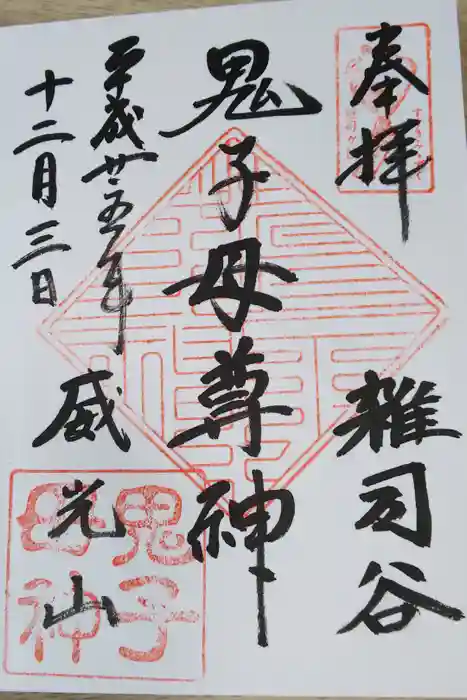 奉拝
雑司谷
鬼子母尊神
平成廿五年
十二月三日
威光山
鬼子
母神